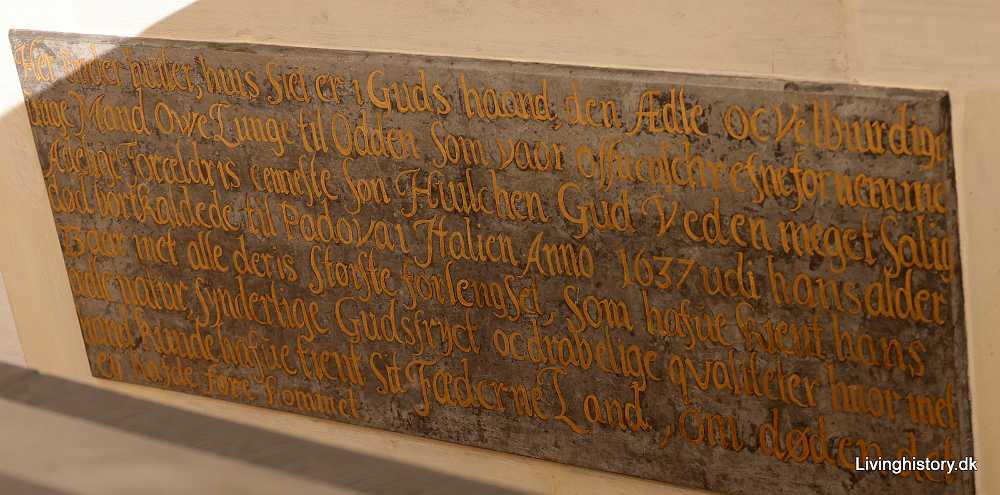 Her Under huiler, huis Siel er i Guds haand, den Ædle oc Velbuurdige
Unge Mand Owe Lunge til Odden Som vaar offuenschrefne fornemme
Adelige Foreldris eeneste Søn Huilchen Gud Ved en meget Salig
død bortkaldede til Padova i Italien Anno 1637 udi hans alder
23 aar met alle deris Største forlengsel, Som hafue kient hans
natur, synderlige Gudsfryct oc drabelige qvaliteter huor met
hand kunde hafue tient Sit Fæderne Land, om døden det
ey hafde fore kommet
Livinghistory.dk